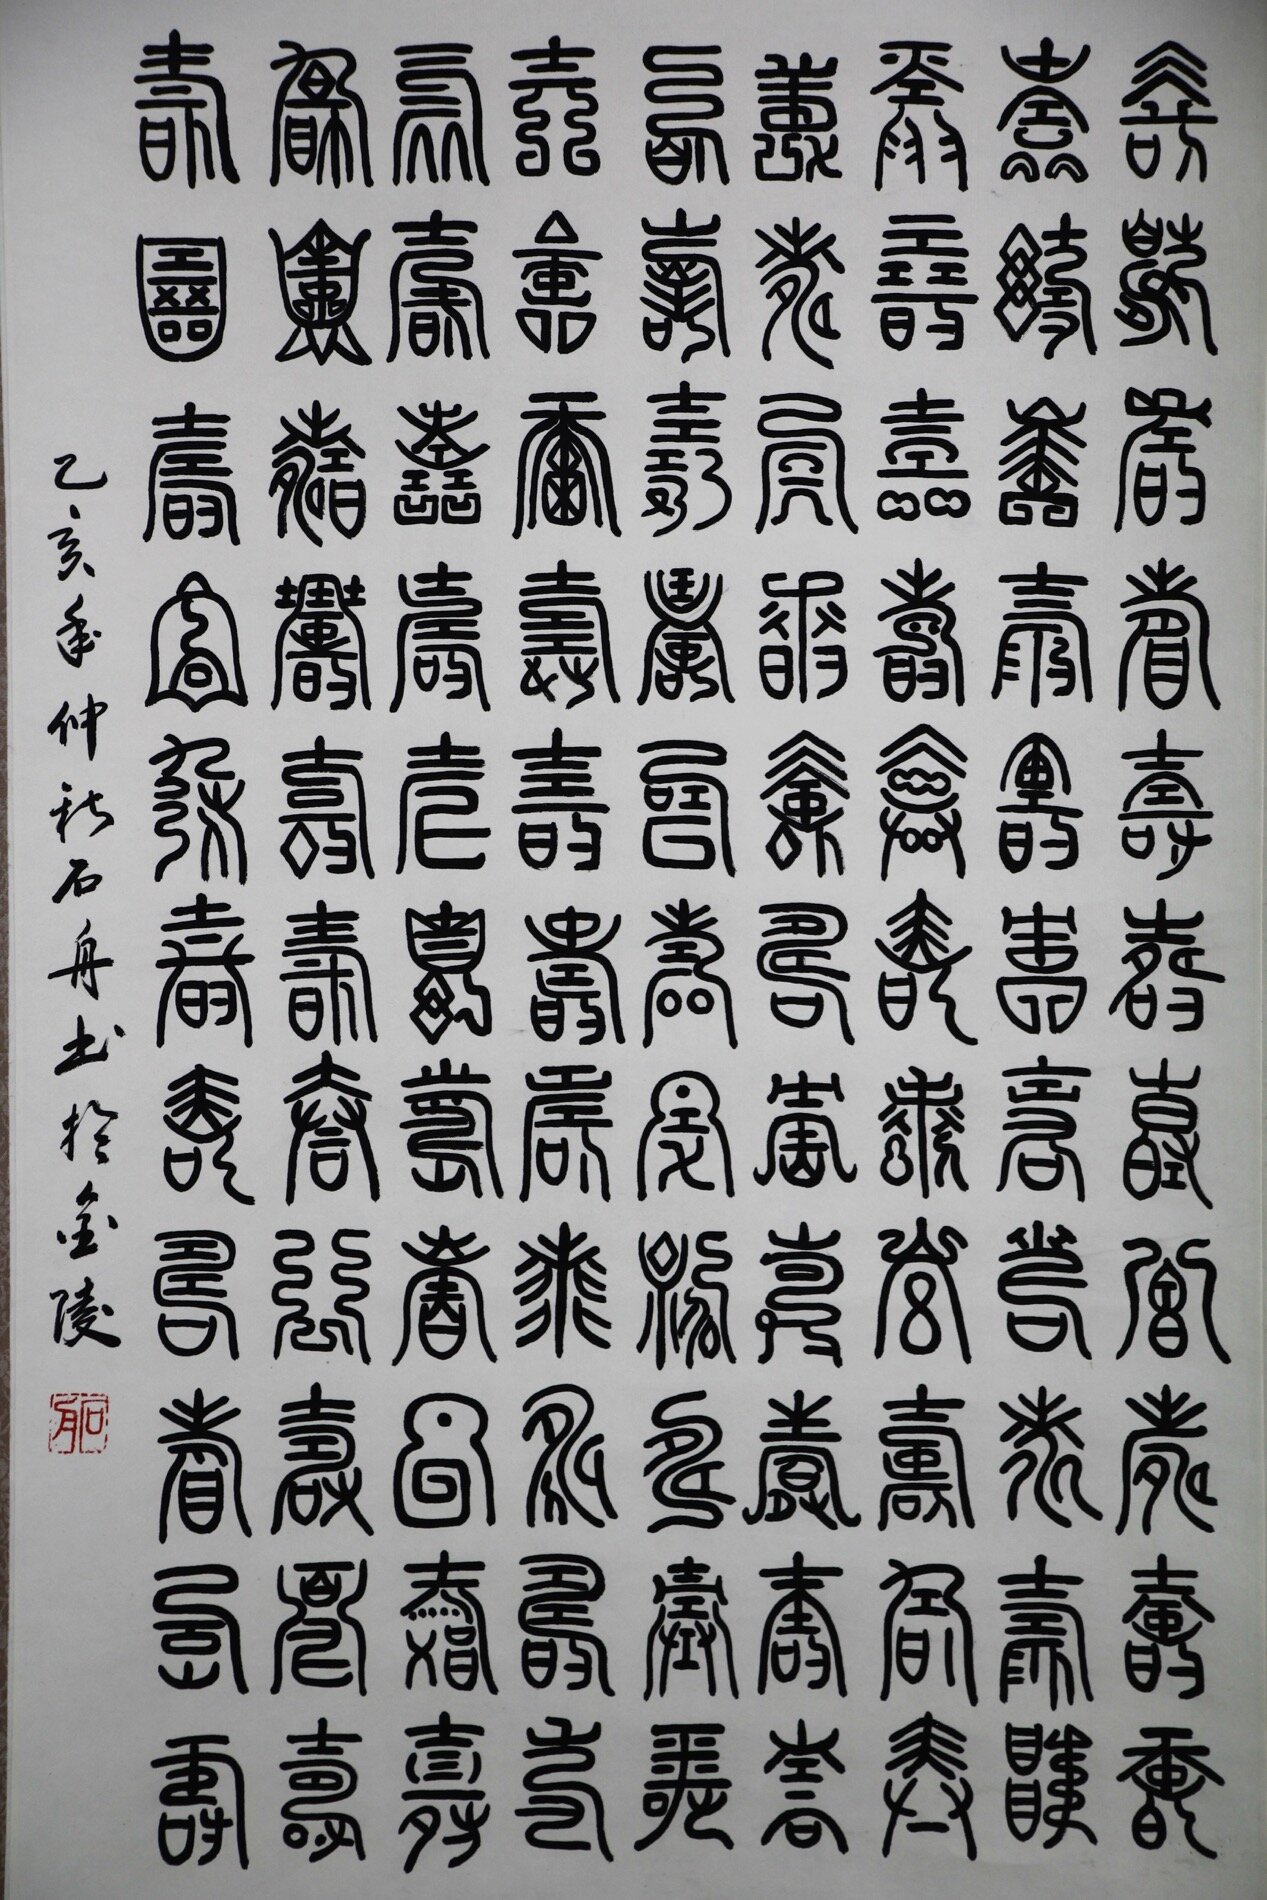 壽壽壽壽壽壽壽壽壽壽壽
壽壽壽壽壽壽壽壽壽壽壽
壽壽壽壽壽壽壽壽壽壽壽
壽壽壽壽壽壽壽壽壽壽壽
壽壽壽壽壽壽壽壽壽壽壽
壽壽壽壽壽壽壽壽壽壽壽
壽壽壽壽壽壽壽壽壽壽壽
壽壽壽壽壽壽壽壽壽壽壽
壽壽壽壽壽壽壽壽壽壽壽
乙亥年仲秋石舟书於金陵
石舟